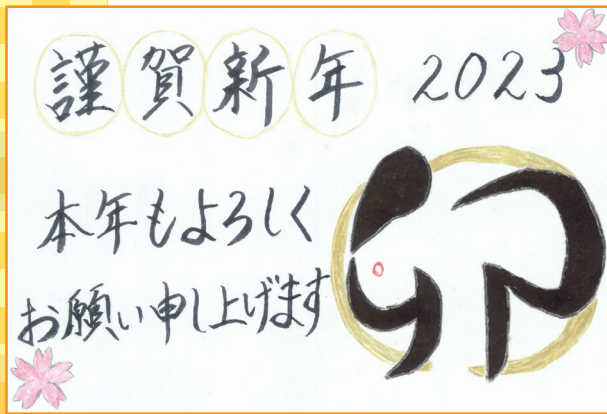 謹賀新年 2023
本年もよろしく
お願い申し上げます
卯